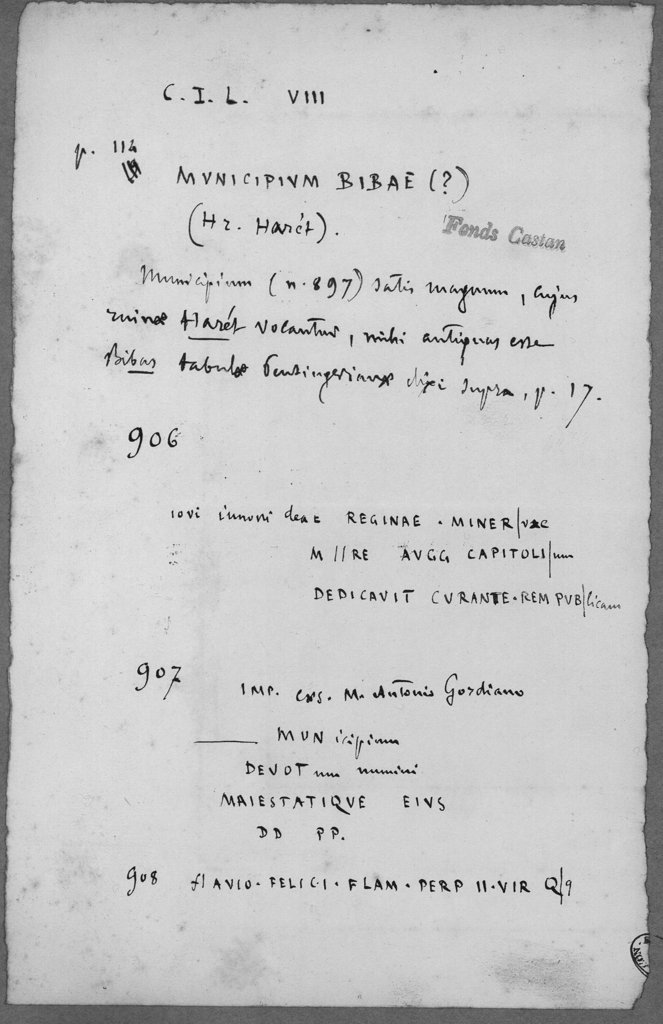 C. I. L. VIII
p. 114
MVNICIPIVM BIBAE (?)
(Hr. Harét).
Fonds Castan
Municipium (n. 897) satis magnum, cujus
ruinæ Harét vocantur, mihi antiquas esse
Bibas tabulæ Peutingerianæ dixi supra, p. 17.
906
iovi iunoni deae REGINAE · MINER|vae
M //RE AVGG CAPITOLI|um
DEDICAVIT CURANTE · REM PUB|licam
907
IMP. cæs. M. Antonio Gordiano
MUN icipium
DEVOT um numini
MAIESTATIQVE EIVS
DD PP.
908
flAVIO · FELICI · FLAM · PERP II · VIR Q|q